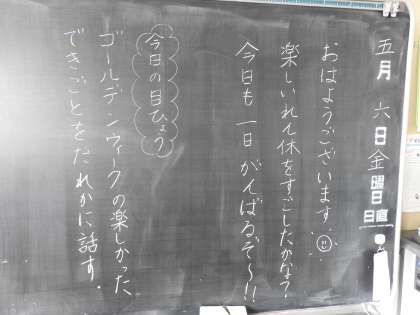 五月 六日 金曜日 日直
おはようございます。
楽しいれん休をすごしたかな？
今日も 一日 がんばるぞ〜!!
今日の目ひょう
ゴールデンウィークの楽しかった
できごとをだれかに話す。